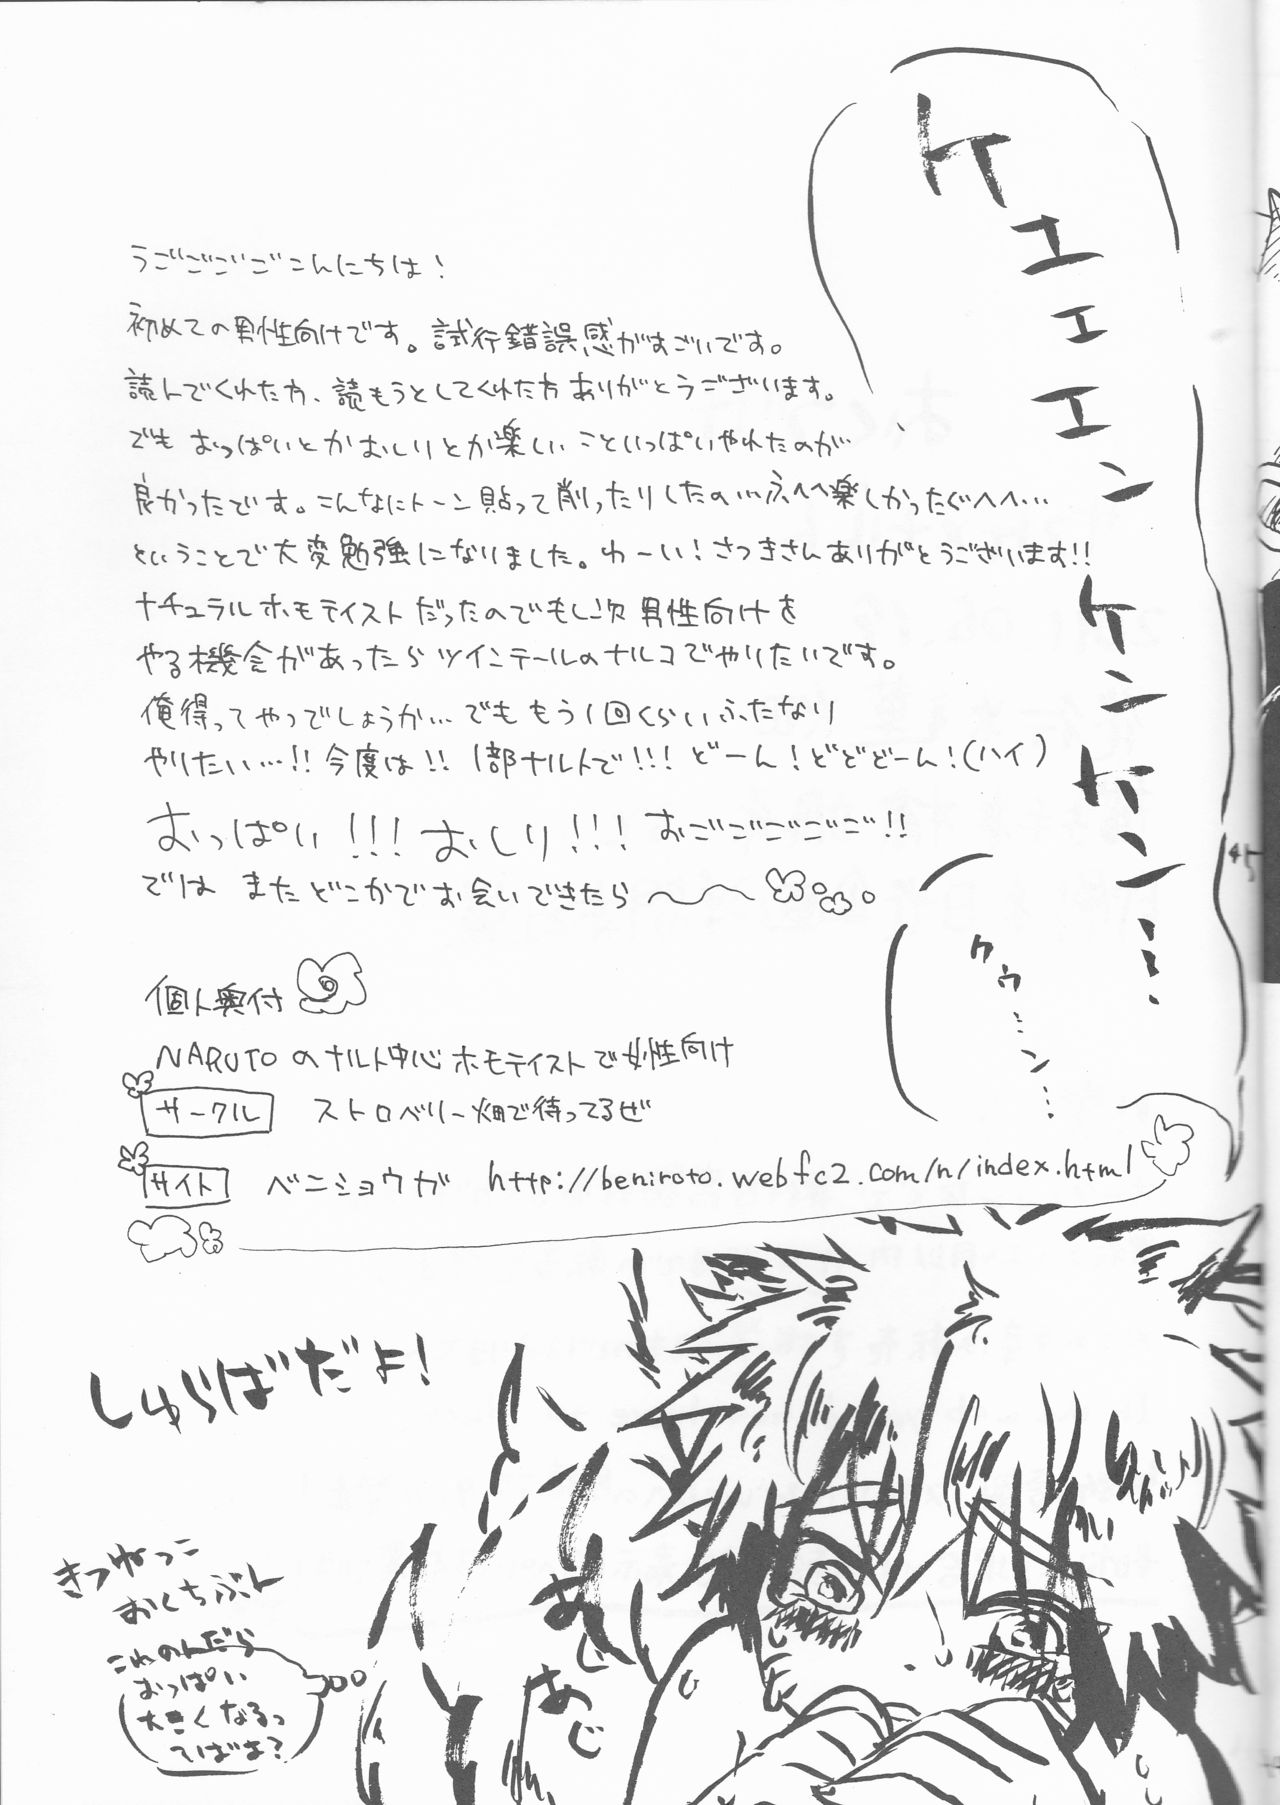 ケエエエンケンケン…
クゥ…ン…
うごごごごこんにちは!
初めての男性向けです。試行錯誤感がすごいです。
読んでくれた方、読もうとしてくれた方ありがとうございます。
でもおっぱいとかおしりとか楽しいこといっぱいやれたのが
良かったです。こんなにトーン貼って削ったりしたの…ふへへ楽しかったぐへへ…
ということで大変勉強になりました。わーい!さつきさんありがとうございます!!
ナチュラルホモテイストだったのでもし次男性向けを
やる機会があったらツインテールのナルコでやりたいです。
俺得ってやつでしょうか…でももう1回くらいふたなり
やりたい…!!今度は!!1部ナルトで!!!どーん!どどどーん!(ハイ)
おっぱい!!!おしり!!!おごごごごご!!
ではまたどこかでお会いできたら〜
個人奥付
NARUTOのナルト中心ホモテイストで女性向け
サークル ストロベリー畑で待ってるぜ
サイト ベニショウガ http://beniroto.web.fc2.com/n/index.html
しゅらばだよ!
きつねっこ
おくちぶん
これのんだら
おっぱい
大きくなるっ
てばよ?
あじ
あじ
45